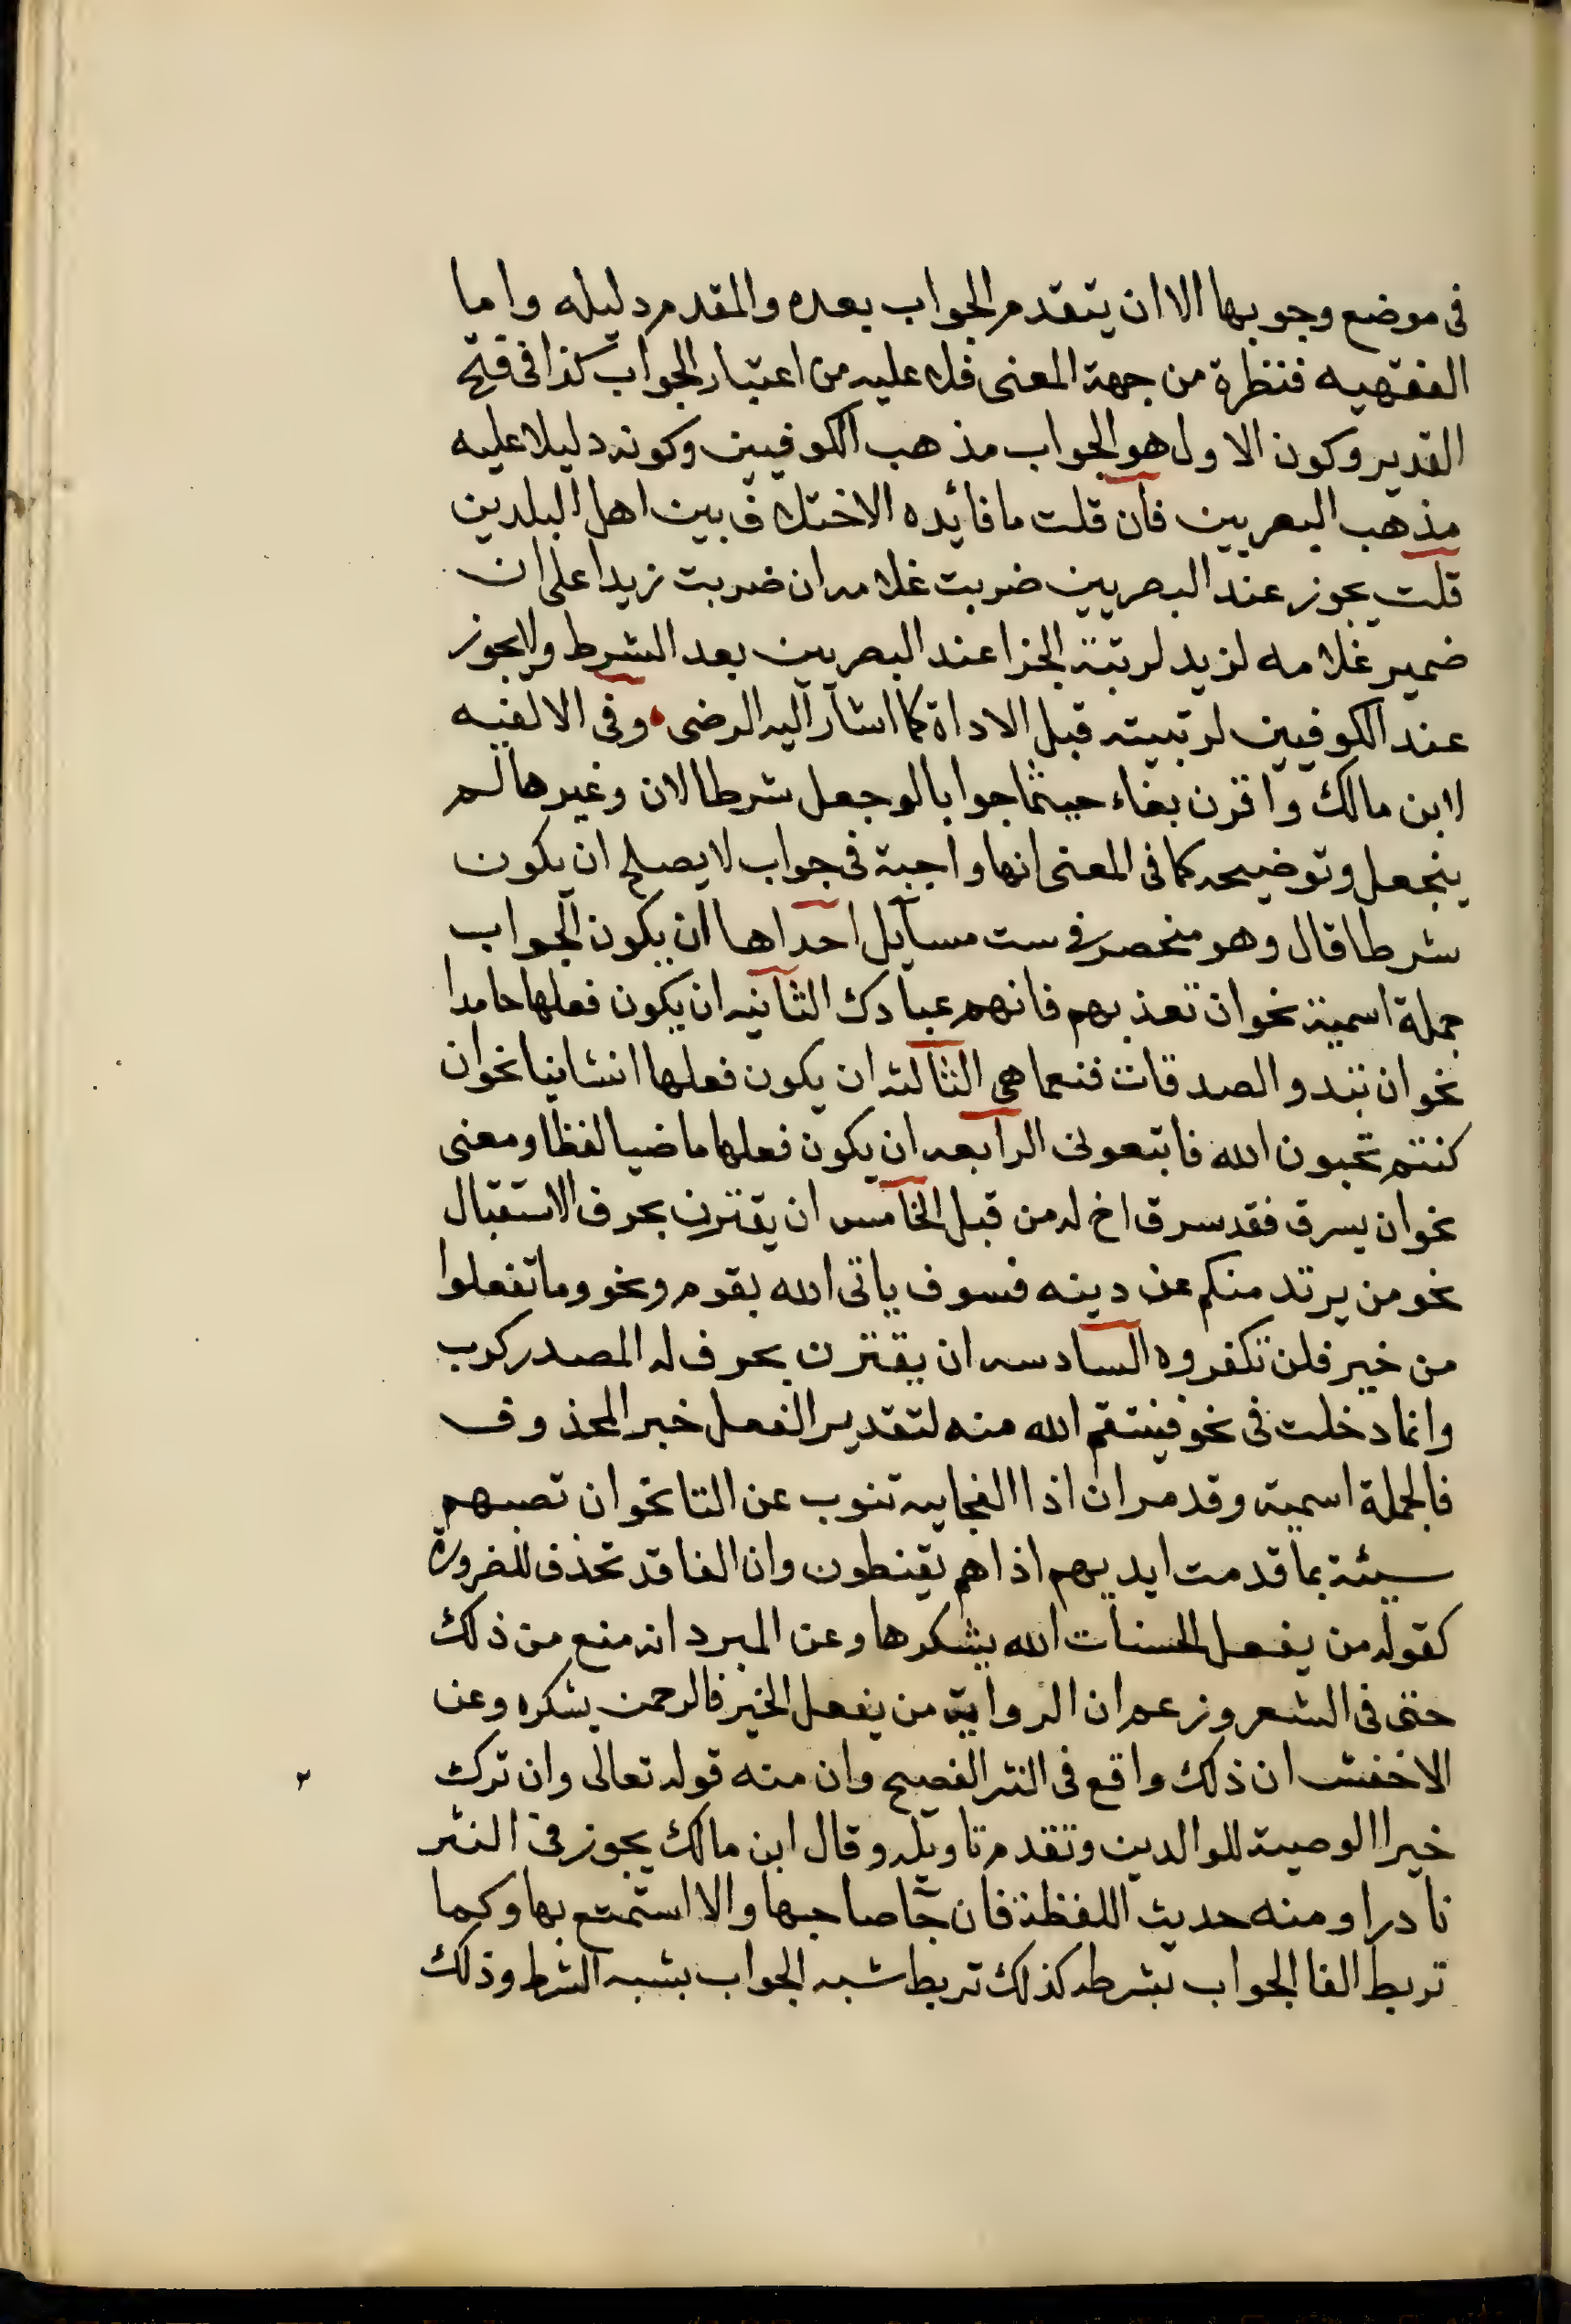 فى موضع وجوبها الا ان يتقدم الجواب بعده والمقدم دليله واما
الفقهيه فنظرة من جهة المعنى فلا عليه من اعتبار الجواب كذا فى فتح
القدير وكون الاول هو الجواب مذهب الكوفيين وكونه دليلا عليه
مذهب البصريين فان قلت ما فائده الاختلاف بين اهل البلدين
قلت يجوز عند البصريين ضربت غلامه ان ضربت زيدا على ان
ضمير غلامه لزيد لرتبة الجزا عند البصريين بعد الشرط ولا يجوز
عند الكوفيين لرتبيته قبل الاداة كما اشار اليه الرضى وفى الالفيه
لابن مالك واقرن بفاء حيثما جوابا لو جعل شرطا لان وغيرها لم
ينجعل وتوضيحه كما فى المعنى انها واجبة فى جواب لا يصلح ان يكون
شرطا قال وهو منحصر فى ست مسايل احداها ان يكون الجواب
جملة اسمية نحو ان تعذبهم فانهم عبادك الثانيه ان يكون فعلها جامدا
نحو ان تبدو الصدقات فنعما هى الثالثه ان يكون فعلها انشانيا نحو ان
كنتم تحبون الله فاتبعونى الرابعه ان يكون فعلها ماضيا لفظا ومعنى
نحو ان يسرق فقد سرق اخ له من قبل الخامس ان يقترن بحرف الاستقبال
نحو من يرتد منكم عن دينه فسوف ياتى الله بقوم ونحو وما تفعلوا
من خير فلن تكفروه السادسه ان يقترن بحرف له المصدر كرب
وانما دخلت فى نحو فينتقم الله منه لتقدير الفعل خبر المحذوف
فالجملة اسمية وقد مر ان اذا الفجاييه تنوب عن الفا نحو ان تصبهم
سيئة بما قدمت ايديهم اذا هم يقنطون وان الفا قد تحذف للضرورة
كقوله من يفعل الحسنات الله يشكرها وعن المبرد انه منع من ذلك
حتى فى الشعر وزعم ان الرواية من يفعل الخير فالرحمن يشكره وعن
الاخفش ان ذلك واقع فى النثر الفصيح وان منه قوله تعالى وان ترك
خيرا الوصية للوالدين وتقدم تاويله وقال ابن مالك يجوز فى النثر
نادرا ومنه حديث اللقطة فان جا صاحبها والا استمتع بها وكما
تربط الفا الجواب بشرطه كذلك تربط شبه الجواب بشبه الشرط وذلك